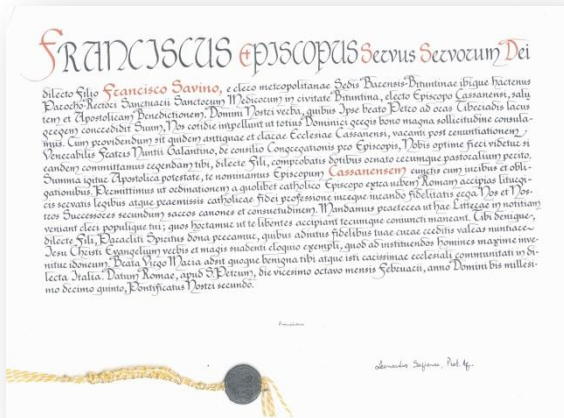 FRANCISCUS EPISCOPUS Servus Servorum Dei
dilecto Filio Francisco Savino, e clero metropolitanae Sedis Barensis-Bituntinae ibique hactenus
Parocho-Rectori Sanctuarii Sanctorum Medicorum in civitate Bituntina, electo Episcopo Cassanensi, salu
tem et Apostolicam Benedictionem. Domini Nostri verba, quibus Ipse beato Petro ad oras Tiberiadis lacus
gregem concredidit Suum, Nos cotidie impellunt ut totius Dominici gregis bono magna sollicitudine consula-
mus. Cum providendum sit quidem antiquae et clarae Ecclesiae Cassanensi, vacanti post renuntiationem
Venerabilis Fratris Nuntii Galantino, de consilio Congregationis pro Episcopis, Nobis optime fieri videtur si
eandem committamus regendam tibi, dilecte Fili, comprobatis dotibus ornato rerumque pastoralium perito.
Summa igitur Apostolica potestate, te nominamus Episcopum Cassanensem cunctis cum iuribus et obli-
gationibus. Permittimus ut ordinationem a quolibet catholico Episcopo extra urbem Romam accipias liturgi-
cis servatis legibus atque praemissis catholicae fidei professione necque iurando fidelitatis erga Nos et Nos-
tros Successores secundum sacros canones et consuetudinem. Mandamus praeterea ut hae Litterae in notitiam
veniant cleri populique tui; quos hortamur ut te libentes accipiant tecumque coniuncti maneant. Tibi denique,
dilecte Fili, Paracliti Spiritus dona precamur, quibus adiutus fidelibus tuae curae creditis valeas nuntiare
Iesu Christi Evangelium verbis et magis suadenti eloquio exempli, quod ad instituendos homines maxime inve-
nitur idoneum. Beata Virgo Maria adsit quoque benigna tibi atque isti carissimae ecclesiali communitati in di-
lecta Italia. Datum Romae, apud S. Petrum, die vicesimo octavo mensis Februarii, anno Domini bis millesi-
mo decimo quinto, Pontificatus Nostri secundo.
Franciscus
Leonardus Sapienza, Prot. Ap.